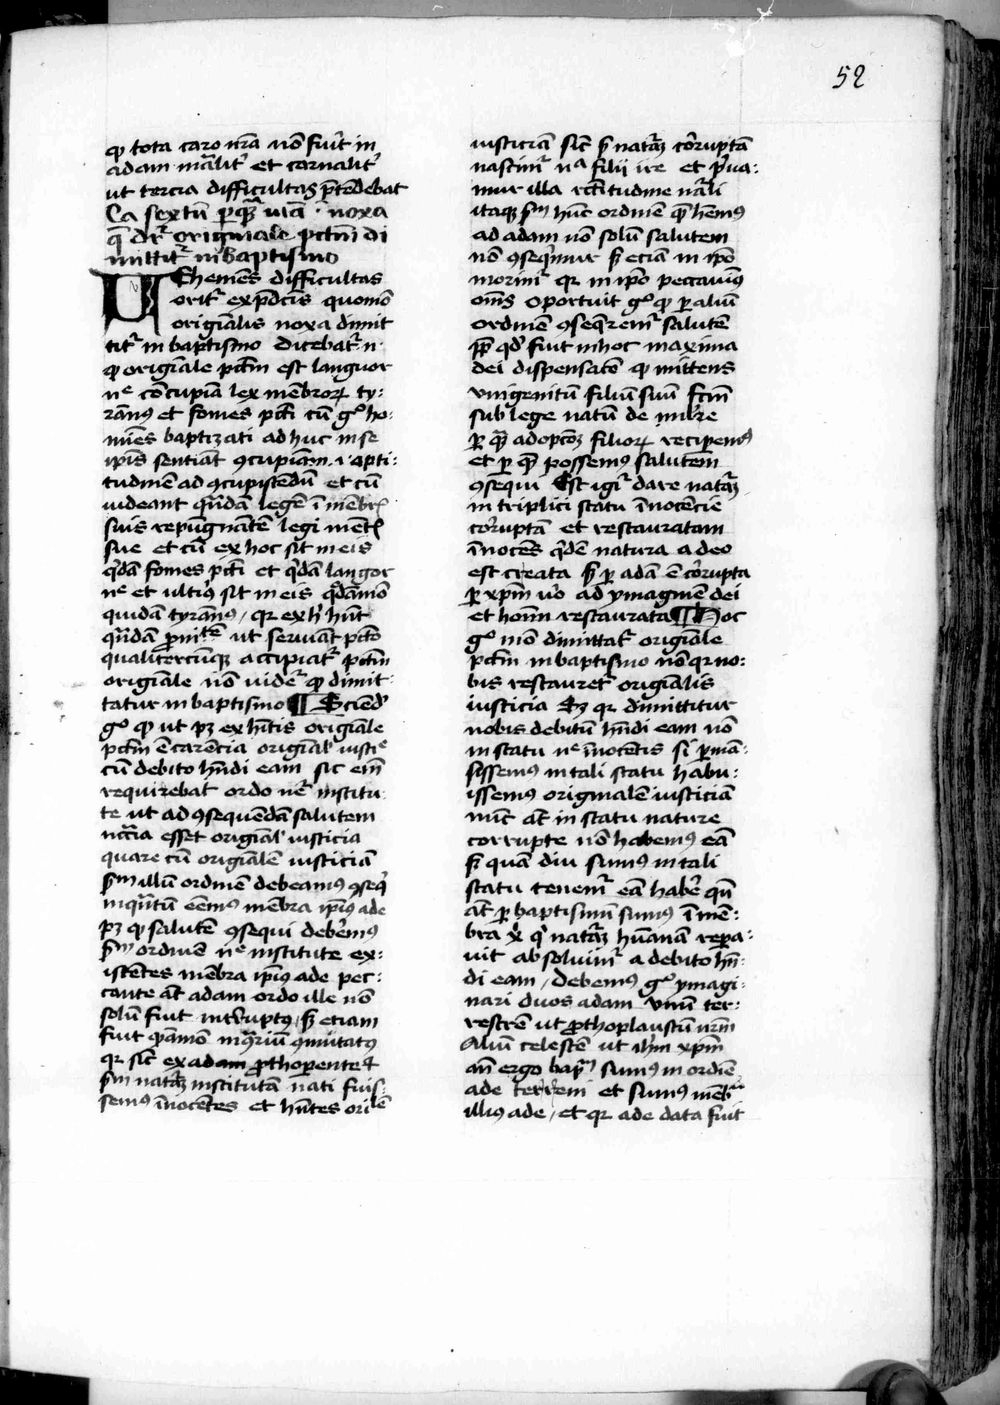 52
qͥ tota caro nr̄a nō fuit in
adam mālit᷑ et carnalit᷑
ut tercia difficultas p̄tēdebat
Ca sextū ꝑ quā uiā noxa
q̄ dr̄ originale pctm̄ di
mittit᷑ in baptismo
Uehemēs difficultas
orit᷑ ex p̄dcis quomō
origīalis noxa dimit
tit᷑ in baptismo dicebat᷑ n̄
ꝙ origīale pctm̄ est languor
nᵉ cōcupīa lex mēbroꝝ ty-
rānꝰ et fomes pcti cū gͦ ho-
mīes baptizati ad huc in se
ip̄is sentiāt ꝯcupīam ⁊ apti-
tudinē ad ꝯcupiscēdū et cū
uideant quādā legē ī mēbr̄
suis repūgnātē legi mēt̄
sue et cū ex hoc sit in eis
q̄dā fomes pcti et q̄dā langor
nᵉ et ultiꝰ sit in eis q̄dāmō
quidā tyrānꝰ qr ex hͦ hn̄t
quādā ꝓnitē ut seruāt pctō
qualitercūqꝫ accipiat᷑ pctm̄
origīale nō uidet᷑ ꝙ dimit-
tatur in baptismo ¶ Sciend̄
gͦ ꝙ ut pꝫ ex hitis origīale
pctm̄ ē carēcia origīal̄ iusticᵉ
cū debito hn̄di eam sic em̄
requirebat ordo nᵉ institu
te ut ad ꝯsequendā salutem
nccīa esset origīal̄ iusticia
quare cū origīalē iusticiā
sᵐ illū ordinē debeamꝰ ꝯseq̄
inq̄ntū eēmꝰ mēbra ip̄iꝰ ade
pꝫ ꝙ salutē ꝯsequi debēmꝰ
sᵐ ordinē nᵉ institute ex-
istētes mēbra ip̄iꝰ ade pec-
cante āt adam ordo ille nō
solū fuit int̄ruptꝰ sꝫ etiam
fuit q̄dāmō in ꝯrium ꝯmutatꝰ
qr sic ex adam ꝓthoparente
sᵐ naturā institutā nati fuis-
semꝰ īnocētes et hn̄tes orilē
iusticiā sic sᵐ naturā corruptā
nascimur nᵃ filii ire et p̄ua-
mur illa rectitudine nāli
itaqꝫ sᵐ hūc ordinē quē hēmꝰ
ad adam nō solū salutem
nō ꝯseq̄mur sꝫ eciam in ip̄o
morim᷑ qr in ip̄o peccauimꝰ
om̄s oportuit gͦ ꝙ ꝑ aliū
ordinē ꝯseq̄rem᷑ salutē
ꝓpter qd̄ fuit in hoc maxima
dei dispensatō ꝙ mittens
vnigenitū filiū suū fcm̄
sub lege natū de muliere
ꝑ quē adopcōꝫ filioꝝ recipemꝰ
et ꝑ quē possemꝰ salutem
ꝯsequi Est igit᷑ dare naturā
in triplici statu īnocēcie
corruptā et restauratam
īnocēs q̄dē natura a deo
est creata sꝫ ꝑ adā ē corrupta
ꝑ xpm̄ uͦ ad ymaginē dei
et hoīm restaurata ¶ Hoc
gͦ mō dimittat᷑ origīale
pctm̄ in baptismo nō qr no-
bis restauret᷑ origīalis
iusticia sꝫ qr dimittitur
nobis debitū hn̄di eam nō
in statu nᵉ īnocētis si ꝑmā-
sissemꝰ in tali statu habu-
issemꝰ originalē iusticiā
nūc āt in statu nature
corrupte nō habemꝰ eā
sꝫ quā diu sumꝰ in tali
statu tenem᷑ eā habē qn̄
āt ꝑ baptismū sumꝰ ī mē-
bra xi qͥ naturā hūanā repa-
uit absoluim᷑ a debito hn̄-
di eam, debemꝰ gͦ ymagi-
nari duos adam vnū ter-
restrē ut ꝓthoplaustū nr̄m
Aliū celestē ut ihm̄ xpm̄
an̄ ergo bapᵐ sumꝰ in ordīe
ade terreni et sumꝰ mēbra
illiꝰ ade, et qr ade data fuit